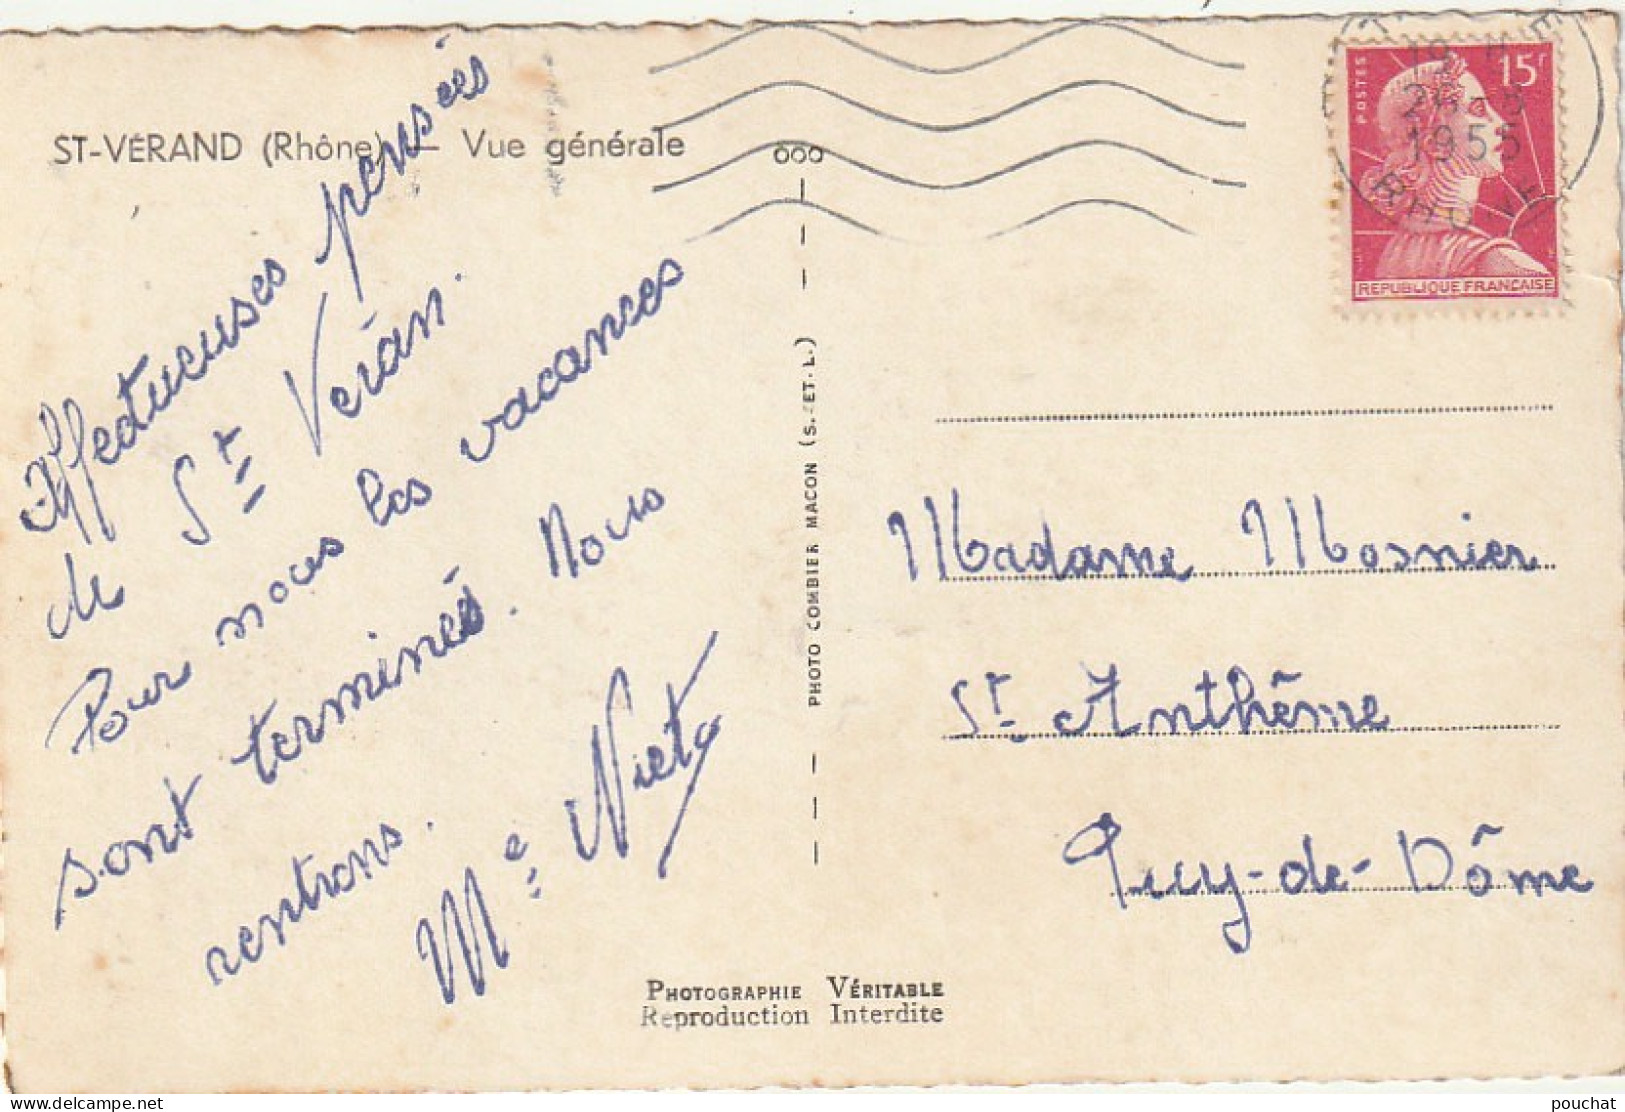 ST-VÉRAND (Rhône) — Vue générale
Affectueuses pensées
de St Véran.
Pour nous les vacances
sont terminés. Nous
rentrons.
Me Nieto
PHOTO COMBIER MACON (S. ET. L.)
PHOTOGRAPHIE VÉRITABLE
Reproduction Interdite
POSTES
15F
REPUBLIQUE FRANÇAISE
19 H
1955
RHONE
Madame Mosnier
St Anthême
Puy-de-Dôme
pouchat